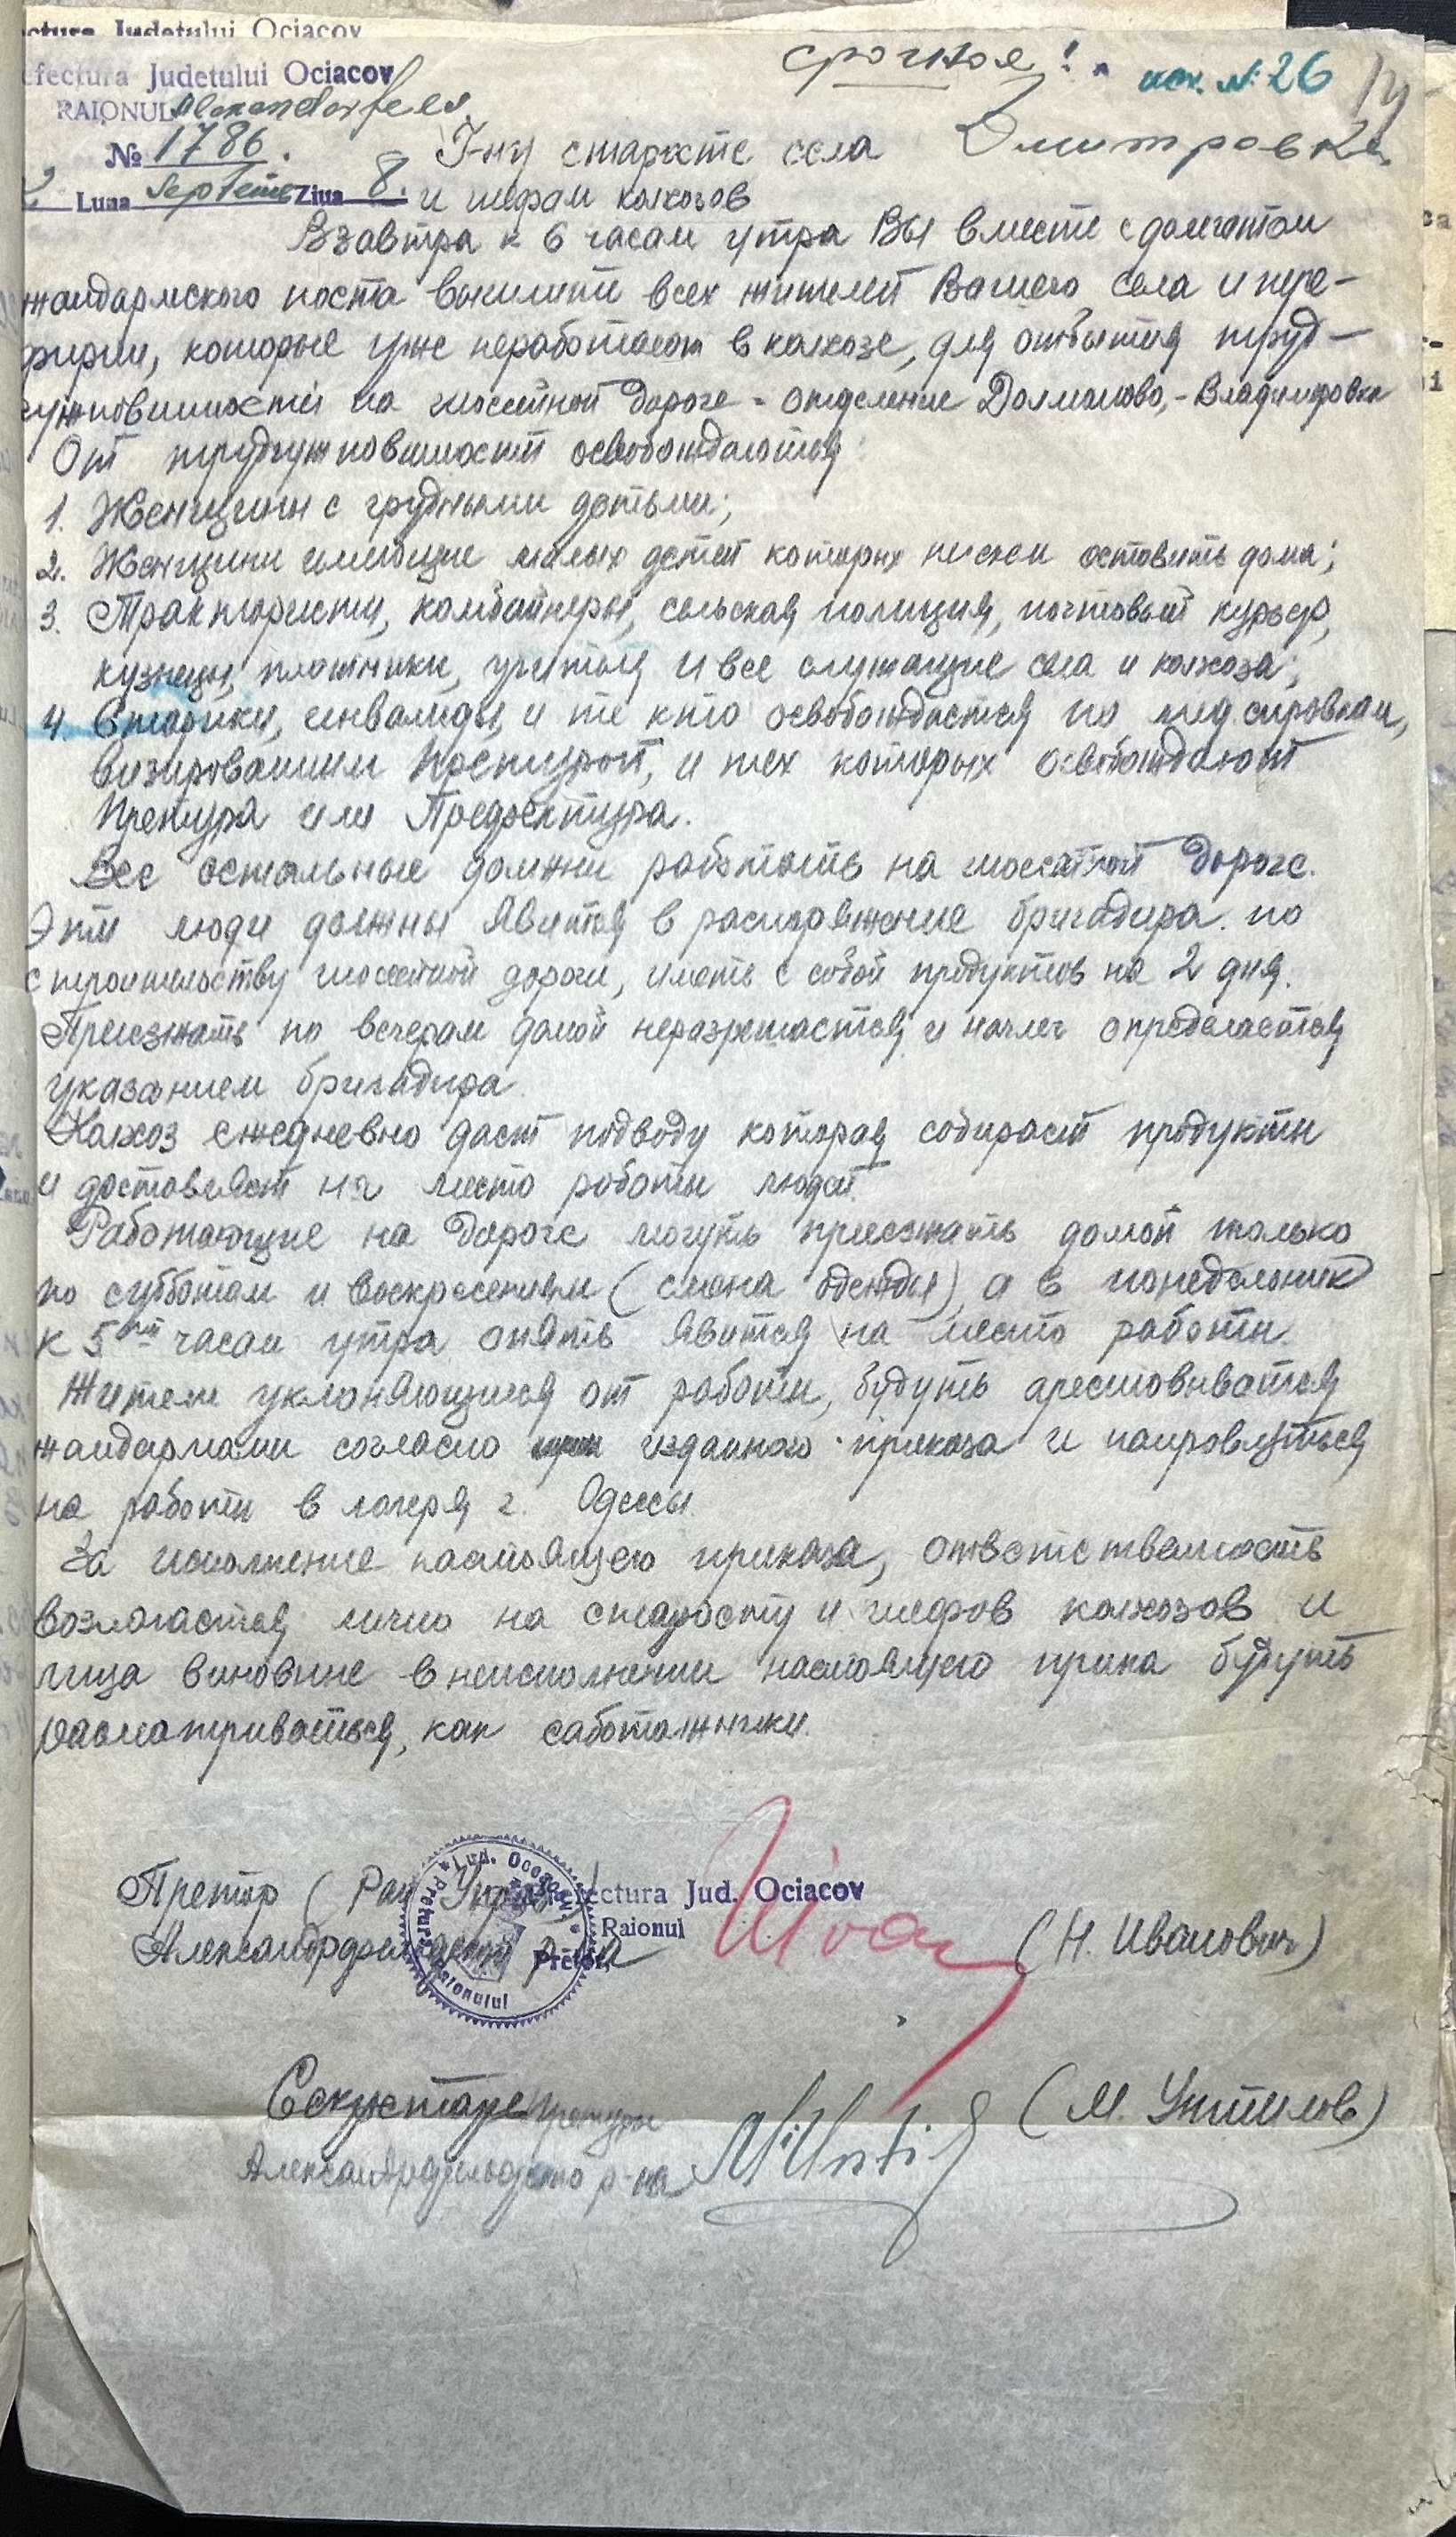 ctura Judetului Ociacov
efectura Judetului Ociacov
срочная!
исх. № 26
RAIONUL Alexandorfels
№ 1786.
Г-ну старосте села Дмитровка
2 Luna Septem Ziua 8.
и шефам колхозов
Взавтра к 6 часам утра Вы вместе с делегатом
жандармского поста вышлите всех жителей Вашего села и пере-
ферии, которые уже неработают в колхозе, для отбытия труд-
гужповинности на шоссейной дороге - отделение Долманово, - Владимировка
От трудгужповинности освобождаются:
1. Женщины с грудными детьми;
2. Женщини имеющие малых детей которых оставить дома;
3. Трактористи, комбайнеры, сельская полиция, почтовый курьер,
кузнецы, плотники, учителя и все служащие села и колхоза;
4. Старики, инвалиды, и те кто освобождается по мед справкам,
визированим Претурой, и тех которых освобождают
Претура или Префектура.
Все остальные должни работать на шоссейной дороге.
Эти люди должны явится в распоряжение бригадира по
строительству шоссейной дороги, иметь с собой продуктов на 2 дня.
Приезжать по вечерам домой неразрешается и ночлег определяется
указанием бригадира
Колхоз ежедневно дает подводу которая собирает продукти
и доставляет на место роботи людей.
Работающие на дороге могуть приезжать домой только
по субботам и воскресениям (смена одежды), а в понедельник
к 5ти часам утра опять явится на место работи.
Жители уклоняющиеся от работи, будуть арестовыватся
жандармами согласно изданного приказа и направляться
на работи в лагеря г. Одессы.
За исполнение настоящего приказа, ответственность
возлагается лично на старосту и шефов колхозов и
лица виновние в неисполнении настоящего прика будуть
расматриваться, как саботажники.
Претор (Рай Управ)
Prefectura Jud. Ociacov
Raionul
Pretor,
р-на
(Н. Иванович)
Jud. Oceacov
Pretura Raionului
Секретарь Претуры
р-на
(М. Устилов)